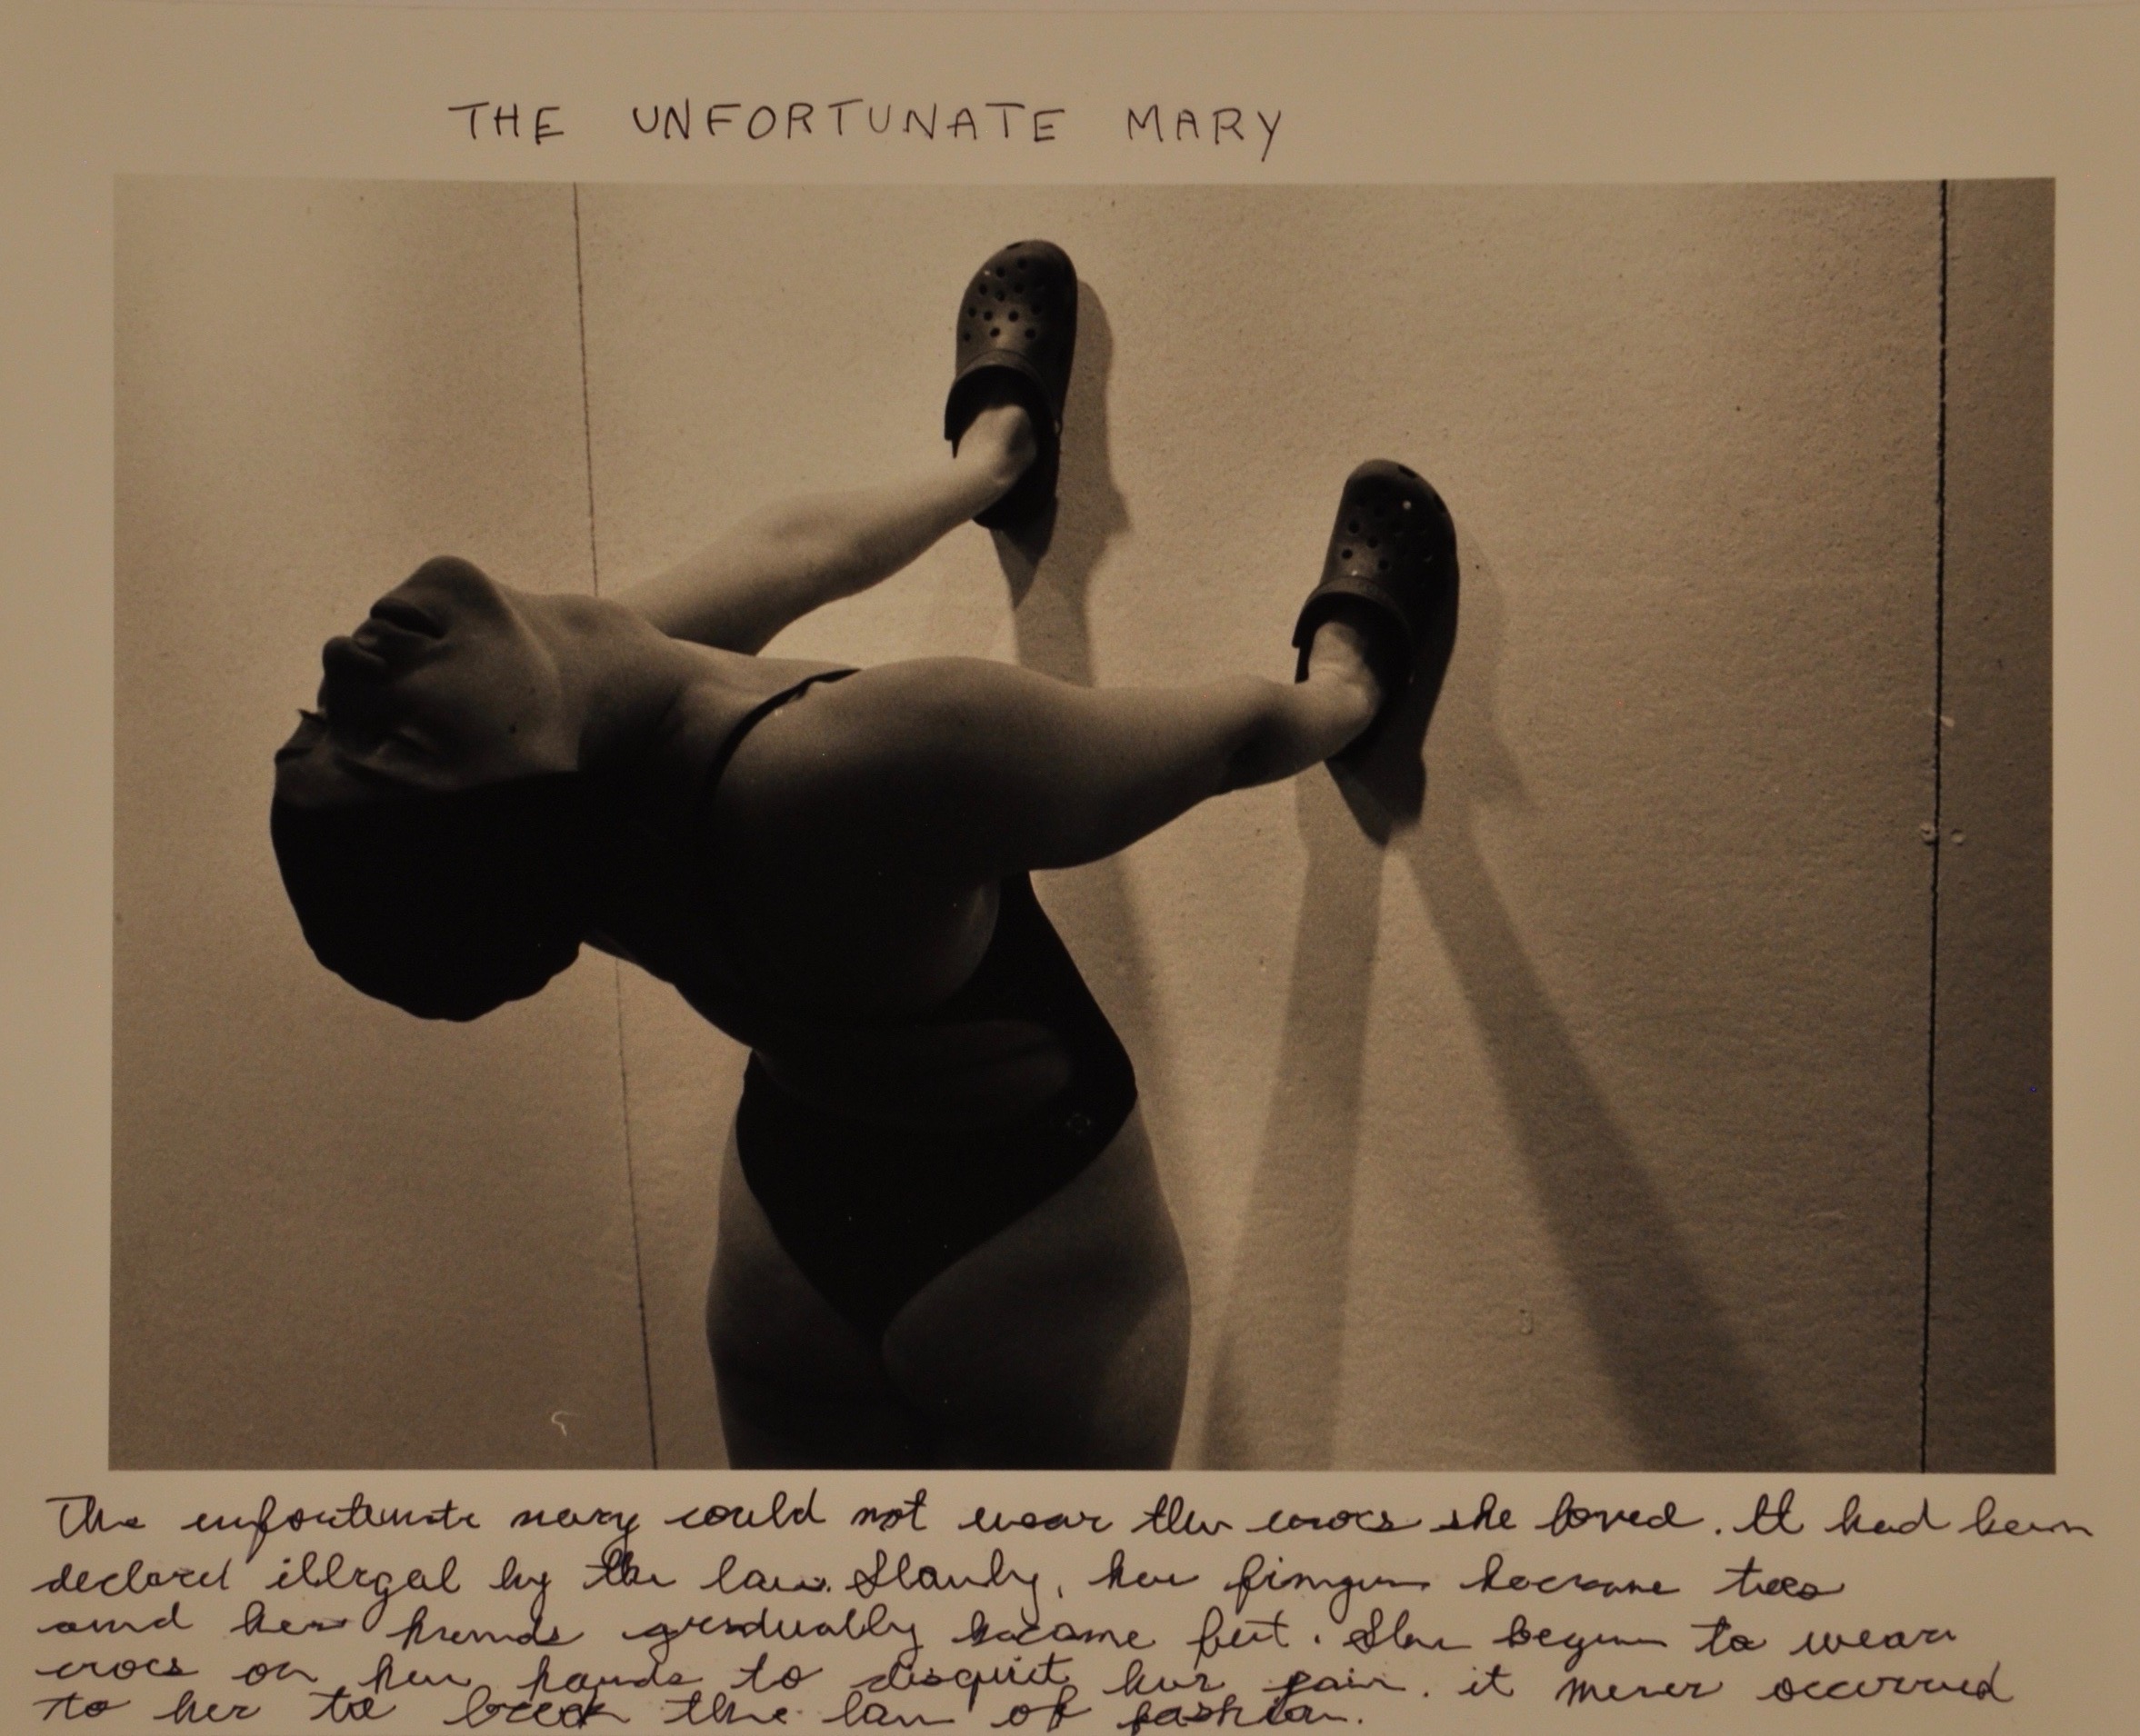 THE UNFORTUNATE MARY
The unfortunate mary could not wear the crocs she loved. It had been
declared illegal by the law. Slowly, her fingers became toes
and her hands gradually became feet. She began to wear
crocs on her hands to disquiet her pain. it never occurred
to her to break the law of fashion.